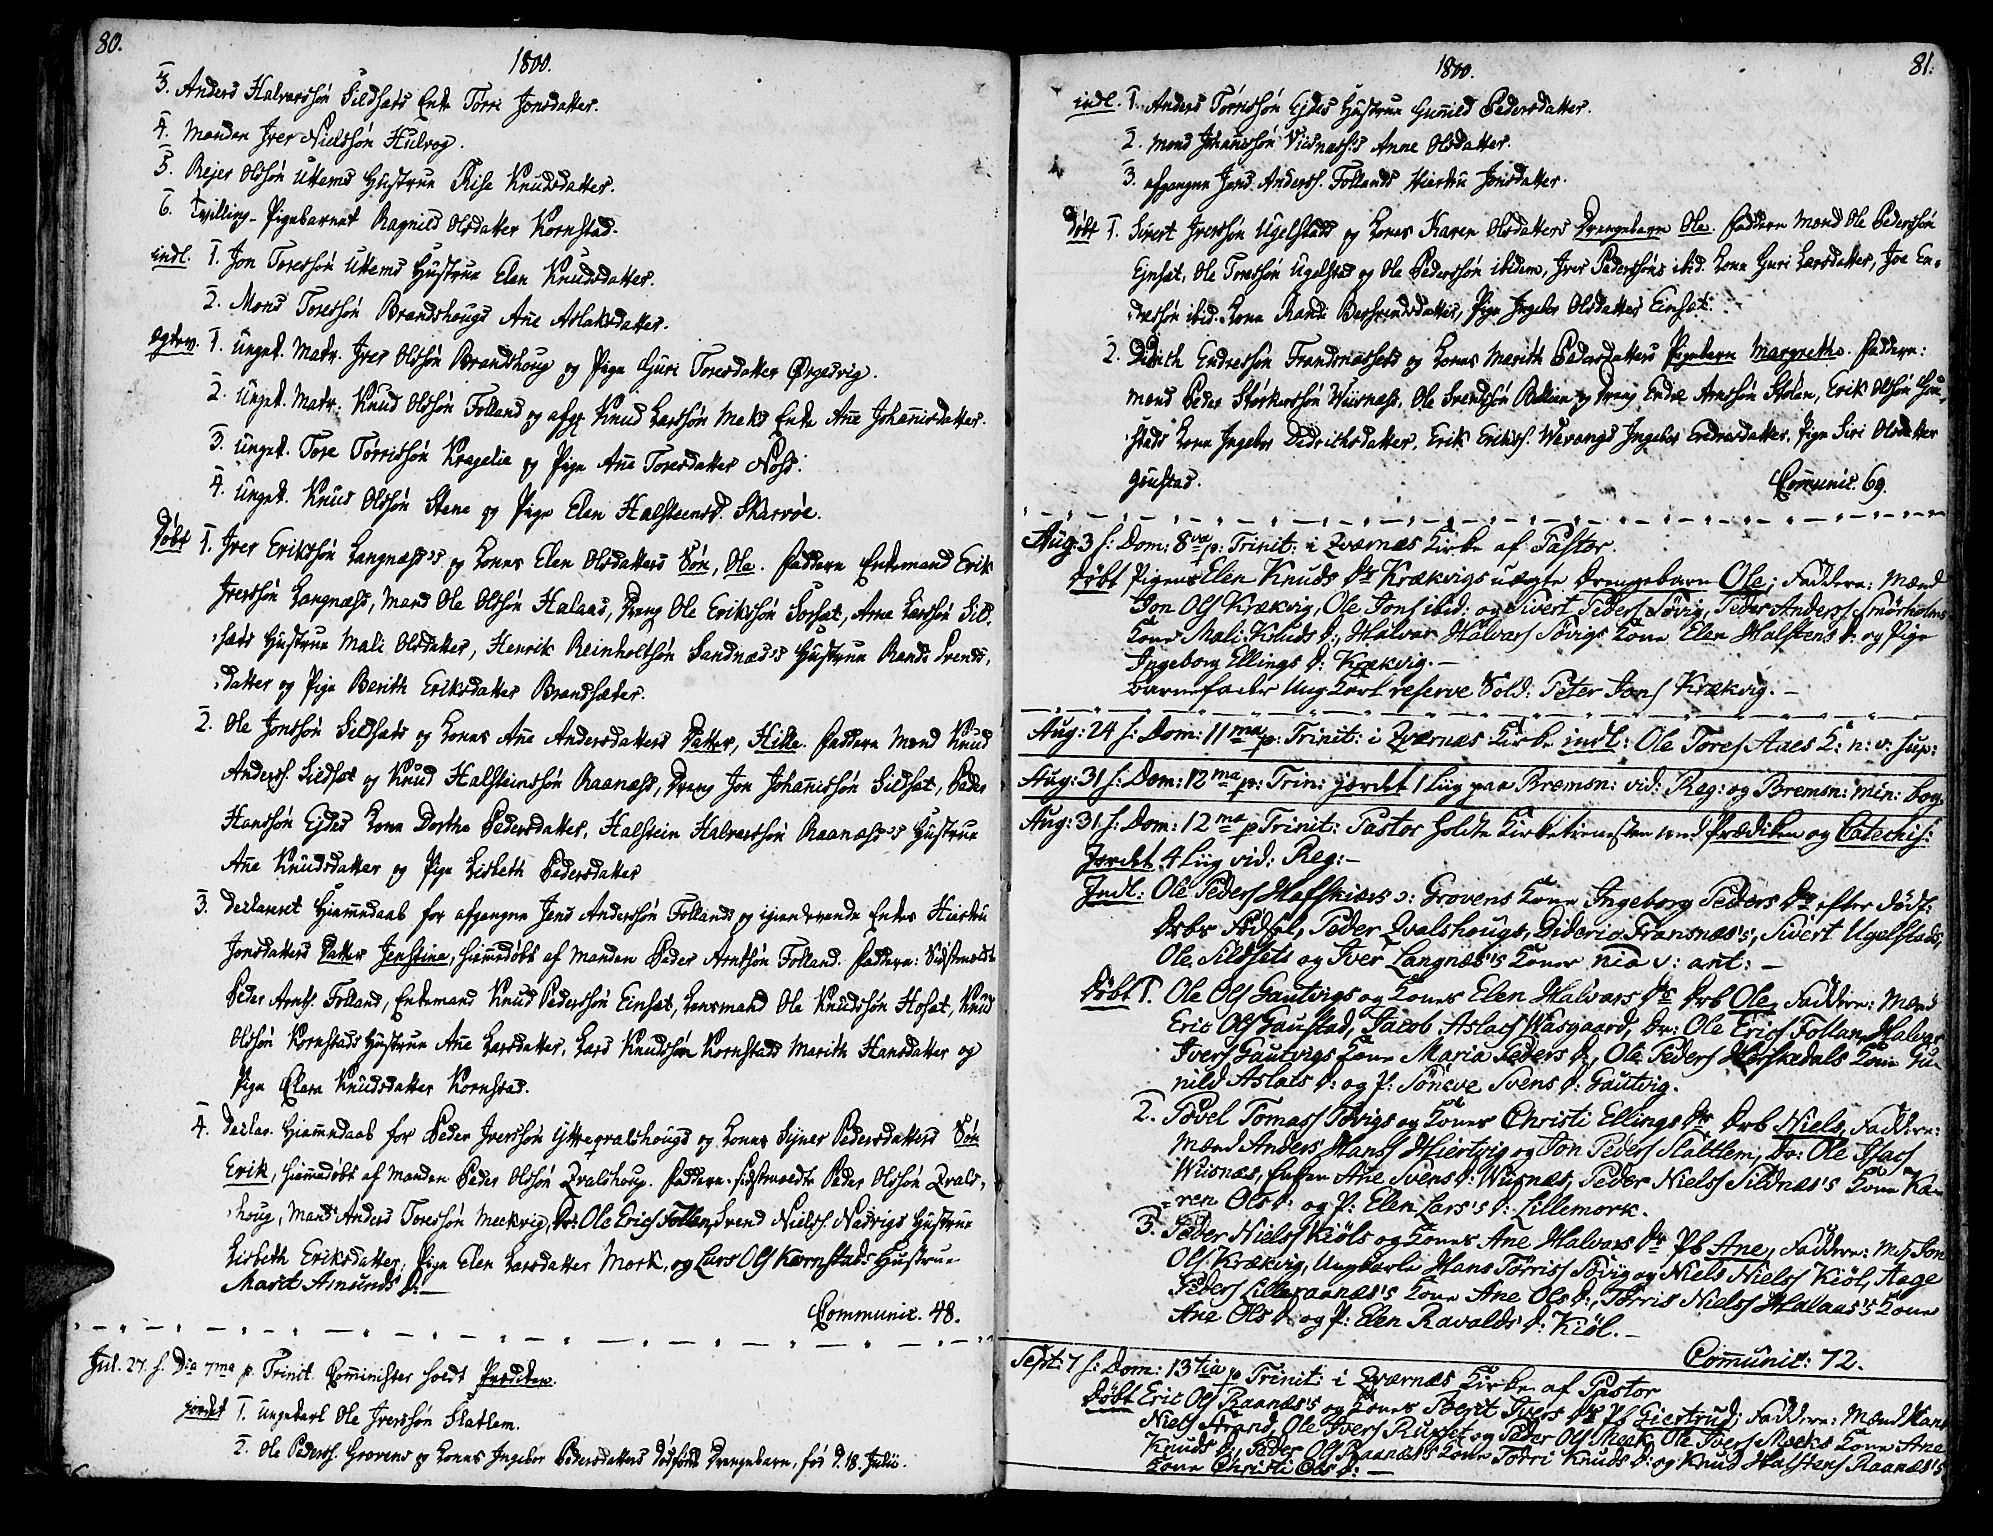 80.
1800.
3. Anders Halvorssøn Sildsæts Enke Torri Jonsdatter.
4. Manden Iver Nielssøn Hulvog.
5. Rejer Olssøn Uttems Hustrue Rise Knudsdatter.
6. Tvilling-Pigebarnet Ragnild Olsdatter Kornstad.
indl. 1. Jon Toressøn Uttems Hustrue Elen Knudsdatter.
2. Mons Toressøn Brandshougs Ane Aslaksdatter.
ægtev. 1. Ungk. Matr. Iver Olssøn Brandshoug og Pige Guri Toresdatter Ørjevig.
2. Ungk. Matr. Knud Olssøn Folland og afg. Knud Larssøn Meks Enke Ane Johannisdatter.
3. Ungk. Tore Torrissøn Kragelie og Pige Ane Toresdatter Noss.
4. Ungk. Knud Olssøn Stene og Pige Elen Halsteensd. Skarvøe.
Døbt 1. Iver Erikssøn Langnæss's og Kones Elen Olsdatters Søn, Ole. Faddere Enkemand Erik
Iverssøn Langnæss, Mand Ole Olssøn Halaas, Dreng Ole Erikssøn Sorsæt, Arne Larssøn Sild-
sæts Hustrue Mali Olsdatter, Henrik Reinholtsøn Sandnæs's Hustrue Randi Svends-
datter og Pige Berith Eriksdatter Brandsæter.
2. Ole Jonssøn Sildsæts og Kones Ane Andersdatters Datter, Hilke. Faddere Mend Knud
Anderss. Sildsæt og Knud Halsteinssøn Raanæss, Dreng Jon Johannissøn Sildsæt, Peder
Hanssøn Ejdes Kone Dorthe Pedersdatter, Halstein Halvorssøn Raanæss's Hustrue
Ane Knudsdatter og Pige Lisbeth Pedersdatter
3. Declareret Hiemmedaab for afgangne Jens Anderssøn Follands og igienlevende Enkes Hierstru
Jonsdatters Datter Jenstine, hiemmedøbt af Manden Peder Arntsøn Folland. Faddere: Sidstmeldte
Peder Arnts. Folland, Enkemand Knud Pederssøn Einsæt, Lensmand Ole Knudssøn Hosæt, Knud
Olssøn Kornstads Hustrue Ane Larsdatter, Lars Knudssøn Kornstads Marith Hansdatter og
Pige Clara Knudsdatter Kornstad.
4. Declar. Hiemmedaab for Peder Iverssøn Yttreqvalshougs og Kones Synev Pedersdatters Søn
Erik, hiemmedøbt af Manden Peder Olssøn Qvalshoug. Faddere: sidstmeldte Peder Olssøn Qvals-
houg, Mand Anders Toressøn Meekvig, Dr: Ole Erics Follan, Svend Nielss. Nasvigs Hustrue
Lisbeth Eriksdatter, Pige Elen Larsdatter Mork, og Lars Ols Kornstads Hustrue
Marit Amunds D:—
Communic. 48.
Jul. 27. f. Dca 7ma p. Trinit. Comminister holdt Prædiken.
jordet 1. Ungekarl Ole Iverssøn Slatlem.
2. Ole Pederss. Grovens og Kones Ingebor Pedersdatters Dødfødte Drengebarn, fød d. 18. Julii.
81.
1800.
indl. 1. Anders Torrissøn Ejdes Hustrue Gunild Pedersdatter.
2. Mons Johannissøn Viisnæss's Anne Olsdatter.
3. afgangne Jens Anderss. Follands Hierstru Jonsdatter.
Døbt 1. Sivert Iverssøn Ugelstads og Kones Karen Olsdatters Drengebarn Ole. Faddere Mend Ole Pederssøn
Einsæt, Ole Toressøn Ugelstad og Ole Pederssøn ibidem, Iver Pederssøns ibid. Kone Guri Larsdatter, Joe En-
dressøn ibid. Kone Randi Bersvendsdatter, Pige Ingebor Olsdatter Einsæt.
2. Didrith Endressøn Frandsnæssets og Kones Marith Pedersdatters Pigebarn Margrethe. Faddere:
Mend Peder Størkerssøn Wiisnæss, Ole Svendssøn Bollien og Dreng Endre Arnssøn Stølen, Erik Olssøn Gou-
stads Kone Ingebor Didrichsdatter, Erik Erikss. Wevangs Ingebor Endresdatter, Pige Siri Olsdatter
Goustad.
Communic. 69.
Aug: 3 f: Dom: 8va p: Trinit: i Qværnæs Kirke af Pastor.
Døbt Pigens Elen Knuds Dr Krækvigs uægte Drengebarn Ole; Faddere: Mænd
Jon Ols Krækvig, Ole Jons ibid: og Sivert Peders Søvig, Peder Anderss Smørholms
Kone Mali Knuds D:, Halvar Halvars Søvigs Kone Elen Halstens D: og Pige
Ingeborg Ellings D: Krækvig.—
Barnefader Ung Karl reserve Sold: Peter Jons Krækvig.—
Aug: 24 f: Dom: 11ma p: Trinit: i Qværnæs Kirke indl: Ole Tores Aaes K: n: v: sup:
Aug: 31 f: Dom: 12ma p: Trin: jordet 1 Liig paa Bremsn: vid: Reg: og Bremsn: Min: bog
Aug: 31 f: Dom: 12ma p Trinit: Pastor holdte Kirketienesten med Prædiken og Catechis:
Jordet 4 Liig vid: Reg:—
Indl: Ole Peders Hafskiers ɔ: Grovens Kone Ingeborg Peders Dr efter Dødf:
Drbs Fødsel, Peder Qvalshougs, Dideric Fransnæs's, Sivert Ugelstads,
Ole Sildsets og Iver Langnæs's Koner nia v: ant:—
Døbt 1. Ole Ols Gautvigs og Kones Elen Halvars Dr Drb Ole, Faddere: Mænd
Eric Ols Gaustad, Jacob Aslacs Waagaard, Dr: Ole Erics Follan, Halvar
Ivers Gautvigs Kone Maria Peders D:, Ole Peders Heiskedals Kone Gu-
nild Aslacs D: og P: Søneve Svens D: Gautvig.
2. Povel Tomass Tøvigs og Kones Christi Ellings Dr Drb Niels, Faddere:
Mænd Anders Hanss Hiertvig og Jon Peders Slatlem, Dr: Ole Isacs
Wiisnæs, Enken Ane Svens D: Wiisnæs, Peder Niels Sildnæs's Kone Ka-
ren Ols D: og P: Elen Lars's D: Lillemork.
3. Peder Niels Kiøls og Kones Ane Halvars Dr Pb Ane, Faddere: M: Jon
Ols Krækvig, Ungkarle Hans Torriss Søvig og Niels Niels Kiøl, Aage
Peders Lilleraanæs's Kone Ane Ols D:, Torris Niels Halaas's Kone
Ane Ols D: og P: Elen Ravalds D: Kiøl.—
Communic: 72.
Sept: 7 f: Dom: 13tia p Trinit: i Qværnæs Kirke af Pastor
Døbt Eric Ols Raanæs's og Kones Berit Ivers Dr Pb Giertrud; Faddere: Mænd Hans
Niels Strand, Ole Ivers Rupset og Peder Ols Meek, Ole Ivers Meeks Kone Ane
Knuds D:, Peder Ols Raanæs's Kone Torri Knuds D: og Knud Halstens Raanæs's
Kone Christi Ols D:—